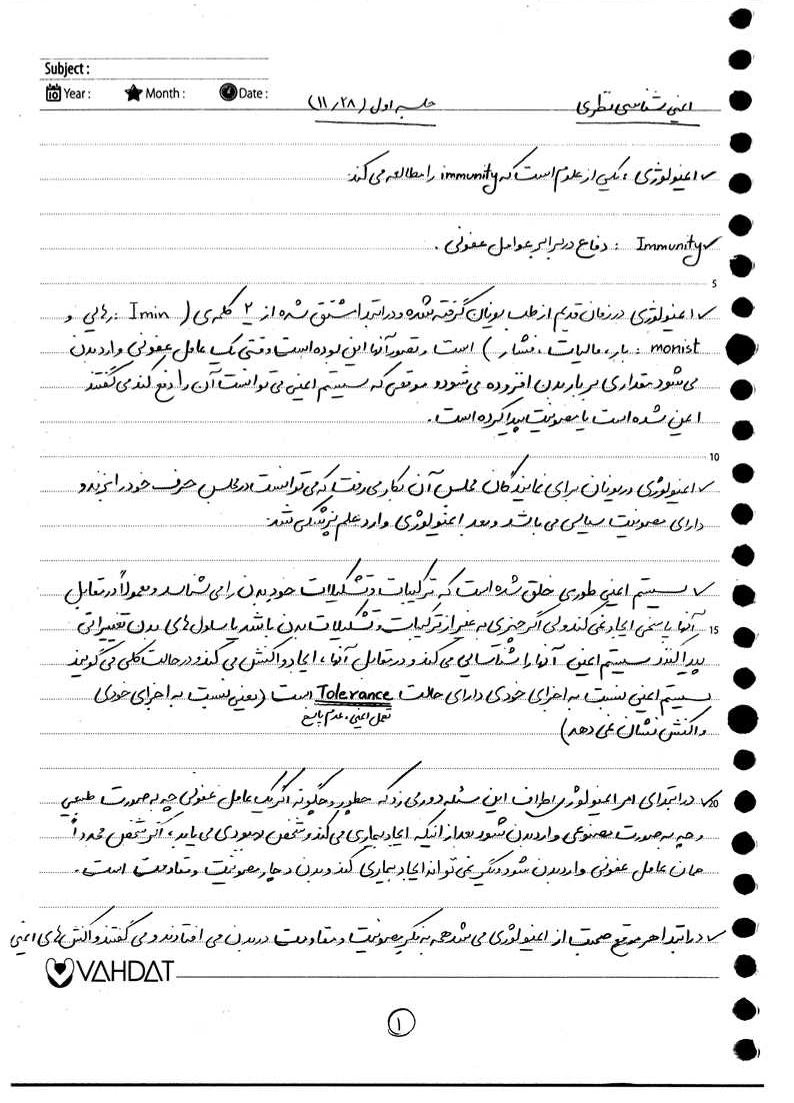 Subject :
Year : Month : Date :
ایمنی شناسی نظری جلسه اول (۱۱/۲۸)
✓ ایمنولوژی ، یکی از علوم است که immunity را مطالعه می کند.
✓ Immunity : دفاع در برابر عوامل عفونی .
5
✓ ایمنولوژی در زمان قدیم از طب یونان گرفته شده و در ابتدا مشتق شده از ۲ کلمه ی ( Imin : رهایی و
monist : بار، مالیات ، فشار ) است و تصور آنها این بوده است وقتی یک عامل عفونی وارد بدن
می شود مقداری بر بار بدن افزوده می شود و موقعی که سیستم ایمنی می توانست آن را دفع کند می گفتند
ایمن شده است یا مصونیت پیدا کرده است.
10
✓ ایمنولوژی در یونان برای نمایندگان مجلس آن بکار می رفت که می توانست در مجلس حرف خود را بزند و
دارای مصونیت سیاسی می باشد و بعد ایمنولوژی وارد علم پزشکی شد.
✓ سیستم ایمنی طوری خلق شده است که ترکیبات و تشکیلات خود بدن را می شناسد و معمولاً در مقابل
15 آنها پاسخی ایجاد نمی کند ولی اگر چیزی به غیر از ترکیبات و تشکیلات بدن باشد یا سلول های بدن تغییراتی
پیدا کنند سیستم ایمنی آنها را شناسایی می کند و در مقابل آنها ، ایجاد واکنش می کند و در حالت کلی می گویند
سیستم ایمنی نسبت به اجزای خودی دارای حالت Tolerance است (یعنی نسبت به اجزای خودی
تحمل ایمنی ، عدم پاسخ
واکنش نشان نمی دهد)
20 ✓ در ابتدای امر ایمنولوژی اطراف این مسئله دور می زد که چطور و چگونه اگر یک عامل عفونی چه به صورت طبیعی
و چه به صورت مصنوعی وارد بدن شود بعد از اینکه ایجاد بیماری می کند و شخص بهبودی می یابد ، اگر شخص مجدداً
همان عامل عفونی وارد بدن شود دیگر نمی تواند ایجاد بیماری کند و بدن دچار مصونیت و مقاومت است .
✓ در ابتدا هر موقع صحبت از ایمنولوژی می شد همه به فکر مصونیت و مقاومت در بدن می افتادند و می گفتند واکنش های ایمنی
VAHDAT
۱